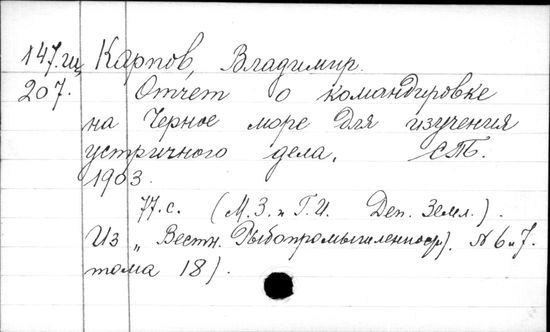 147.гщ Карпов, Владимир.
207. Отчет о командировке
на Черное море для изучения
устричного дела. СПб.
1903.
77.с. (М.З. и Г.И. Деп. Земл.).
Из „Вестн. Рыбопромышленност). № 6 и 7.
тома 18).